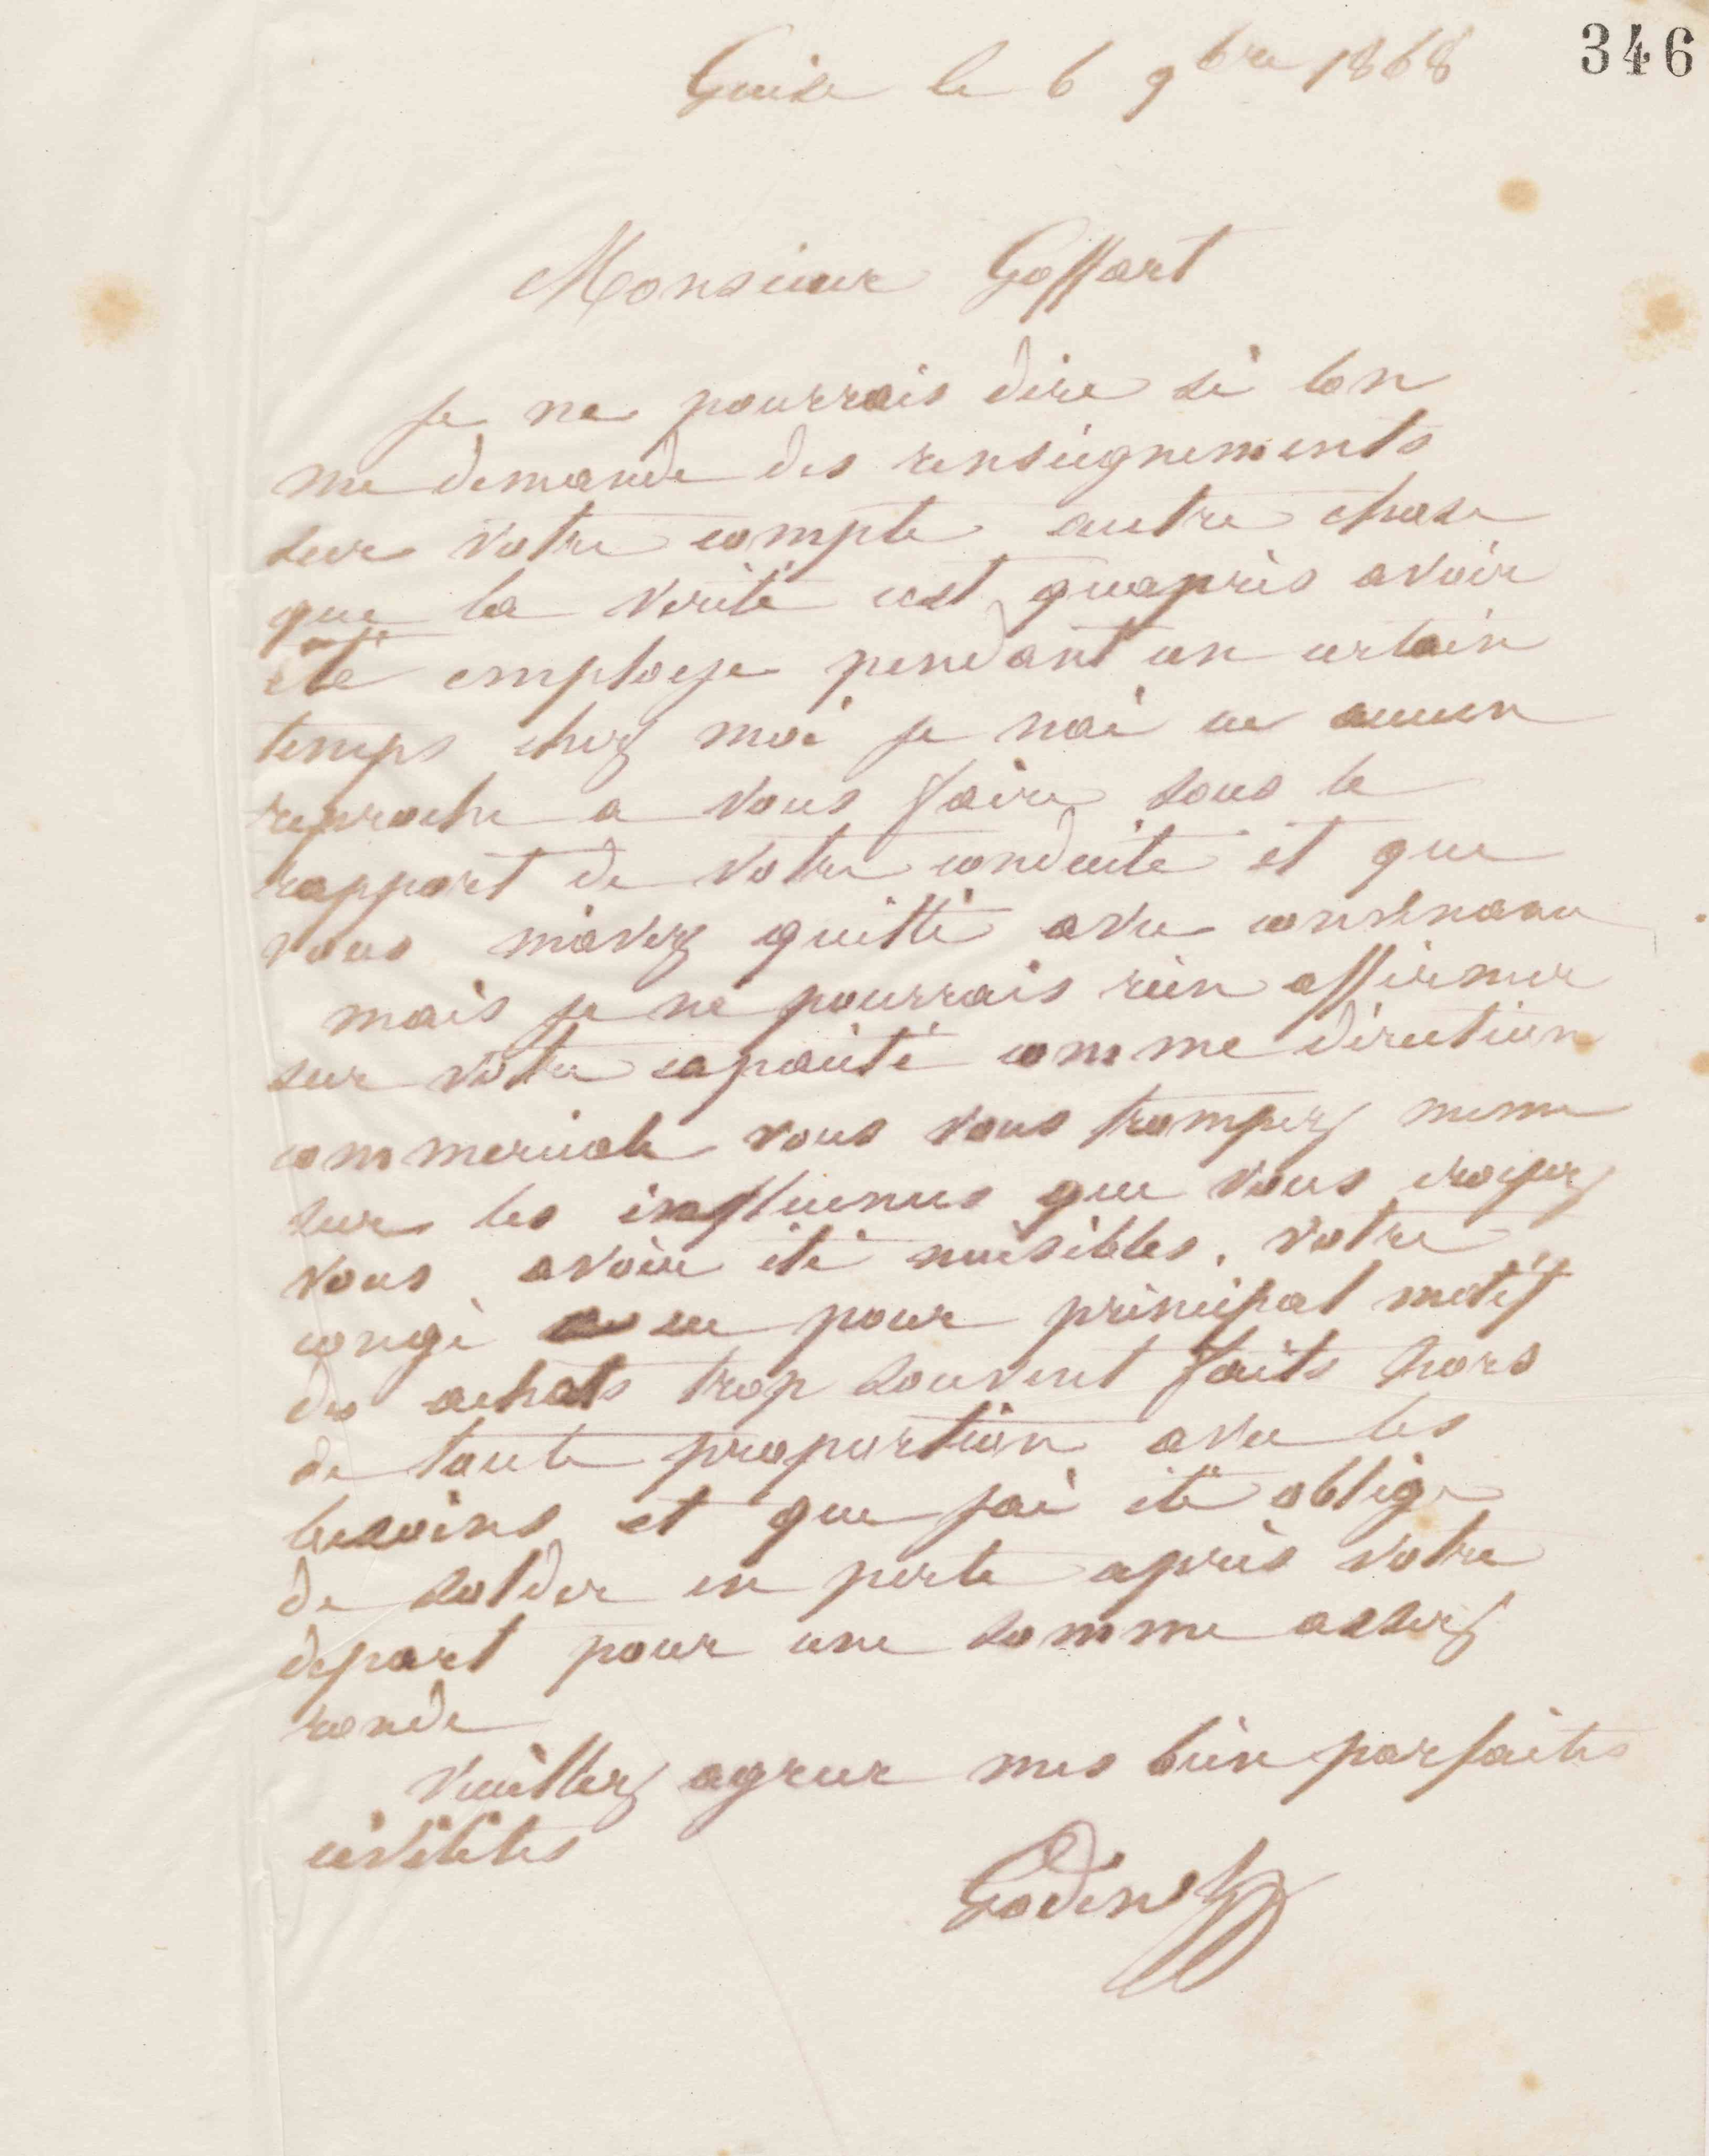 346
Guise le 6 9bre 1868
Monsieur Goffart
Je ne pourrais dire si lon
me demande des renseignements
sur votre compte autre chose
que la verité cest quaprès avoir
été employe pendant un certain
temps chez moi je nai eu aucun
reproche a vous faire sous le
rapport de votre conduite et que
vous mavez quitté avec convenance
mais je ne pourrais rien affirmer
sur votre capacité comme direction
commerciale vous vous trompez meme
sur les influences que vous croyez
vous avoir été nuisibles. votre
congé a eu pour principal motif
des achats trop souvent faits hors
de toute proportion avec les
besoins et que jai été oblige
de solder en perte après votre
depart pour une somme assez
ronde
Veuillez agreer mes bien parfaites
civilités
Godin